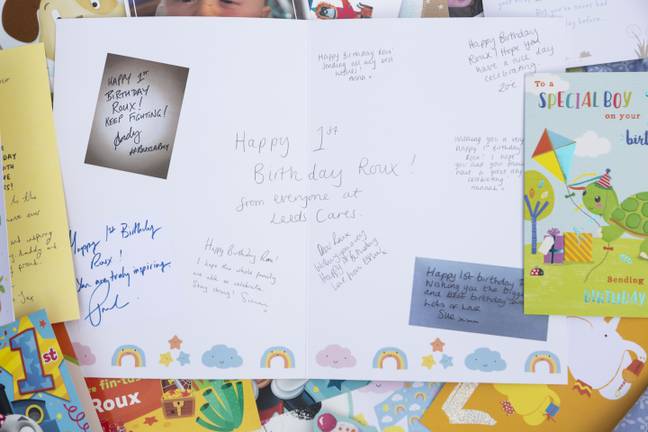 HAPPY 1ST
BIRTHDAY
ROUX!
KEEP FIGHTING!
Andy
Happy Birthday Roux
Sending all my best
wishes!
Happy Birthday
Roux! Hope you
have a nice day
celebrating
Zoe
Happy 1st
Birthday Roux!
from everyone at
Leeds Cares.
Wishing you a very
Happy 1st Birthday
Roux! I hope
you and your family
have a great day
celebrating
Hannah
Happy 1st Birthday
Roux!
You are truly inspiring.
Paul
Happy Birthday Roux!
I hope the whole family
are able to celebrate.
Stay strong!
Dear Roux
Wishing you a very
Happy 1st Birthday
Love from
Happy 1st birthday
Wishing you the biggest
and best birthday
lots of love
Sue xxxx
To a
SPECIAL BOY
on your
birt
Sending
BIRTHDAY
1st
re fin-tas
Roux